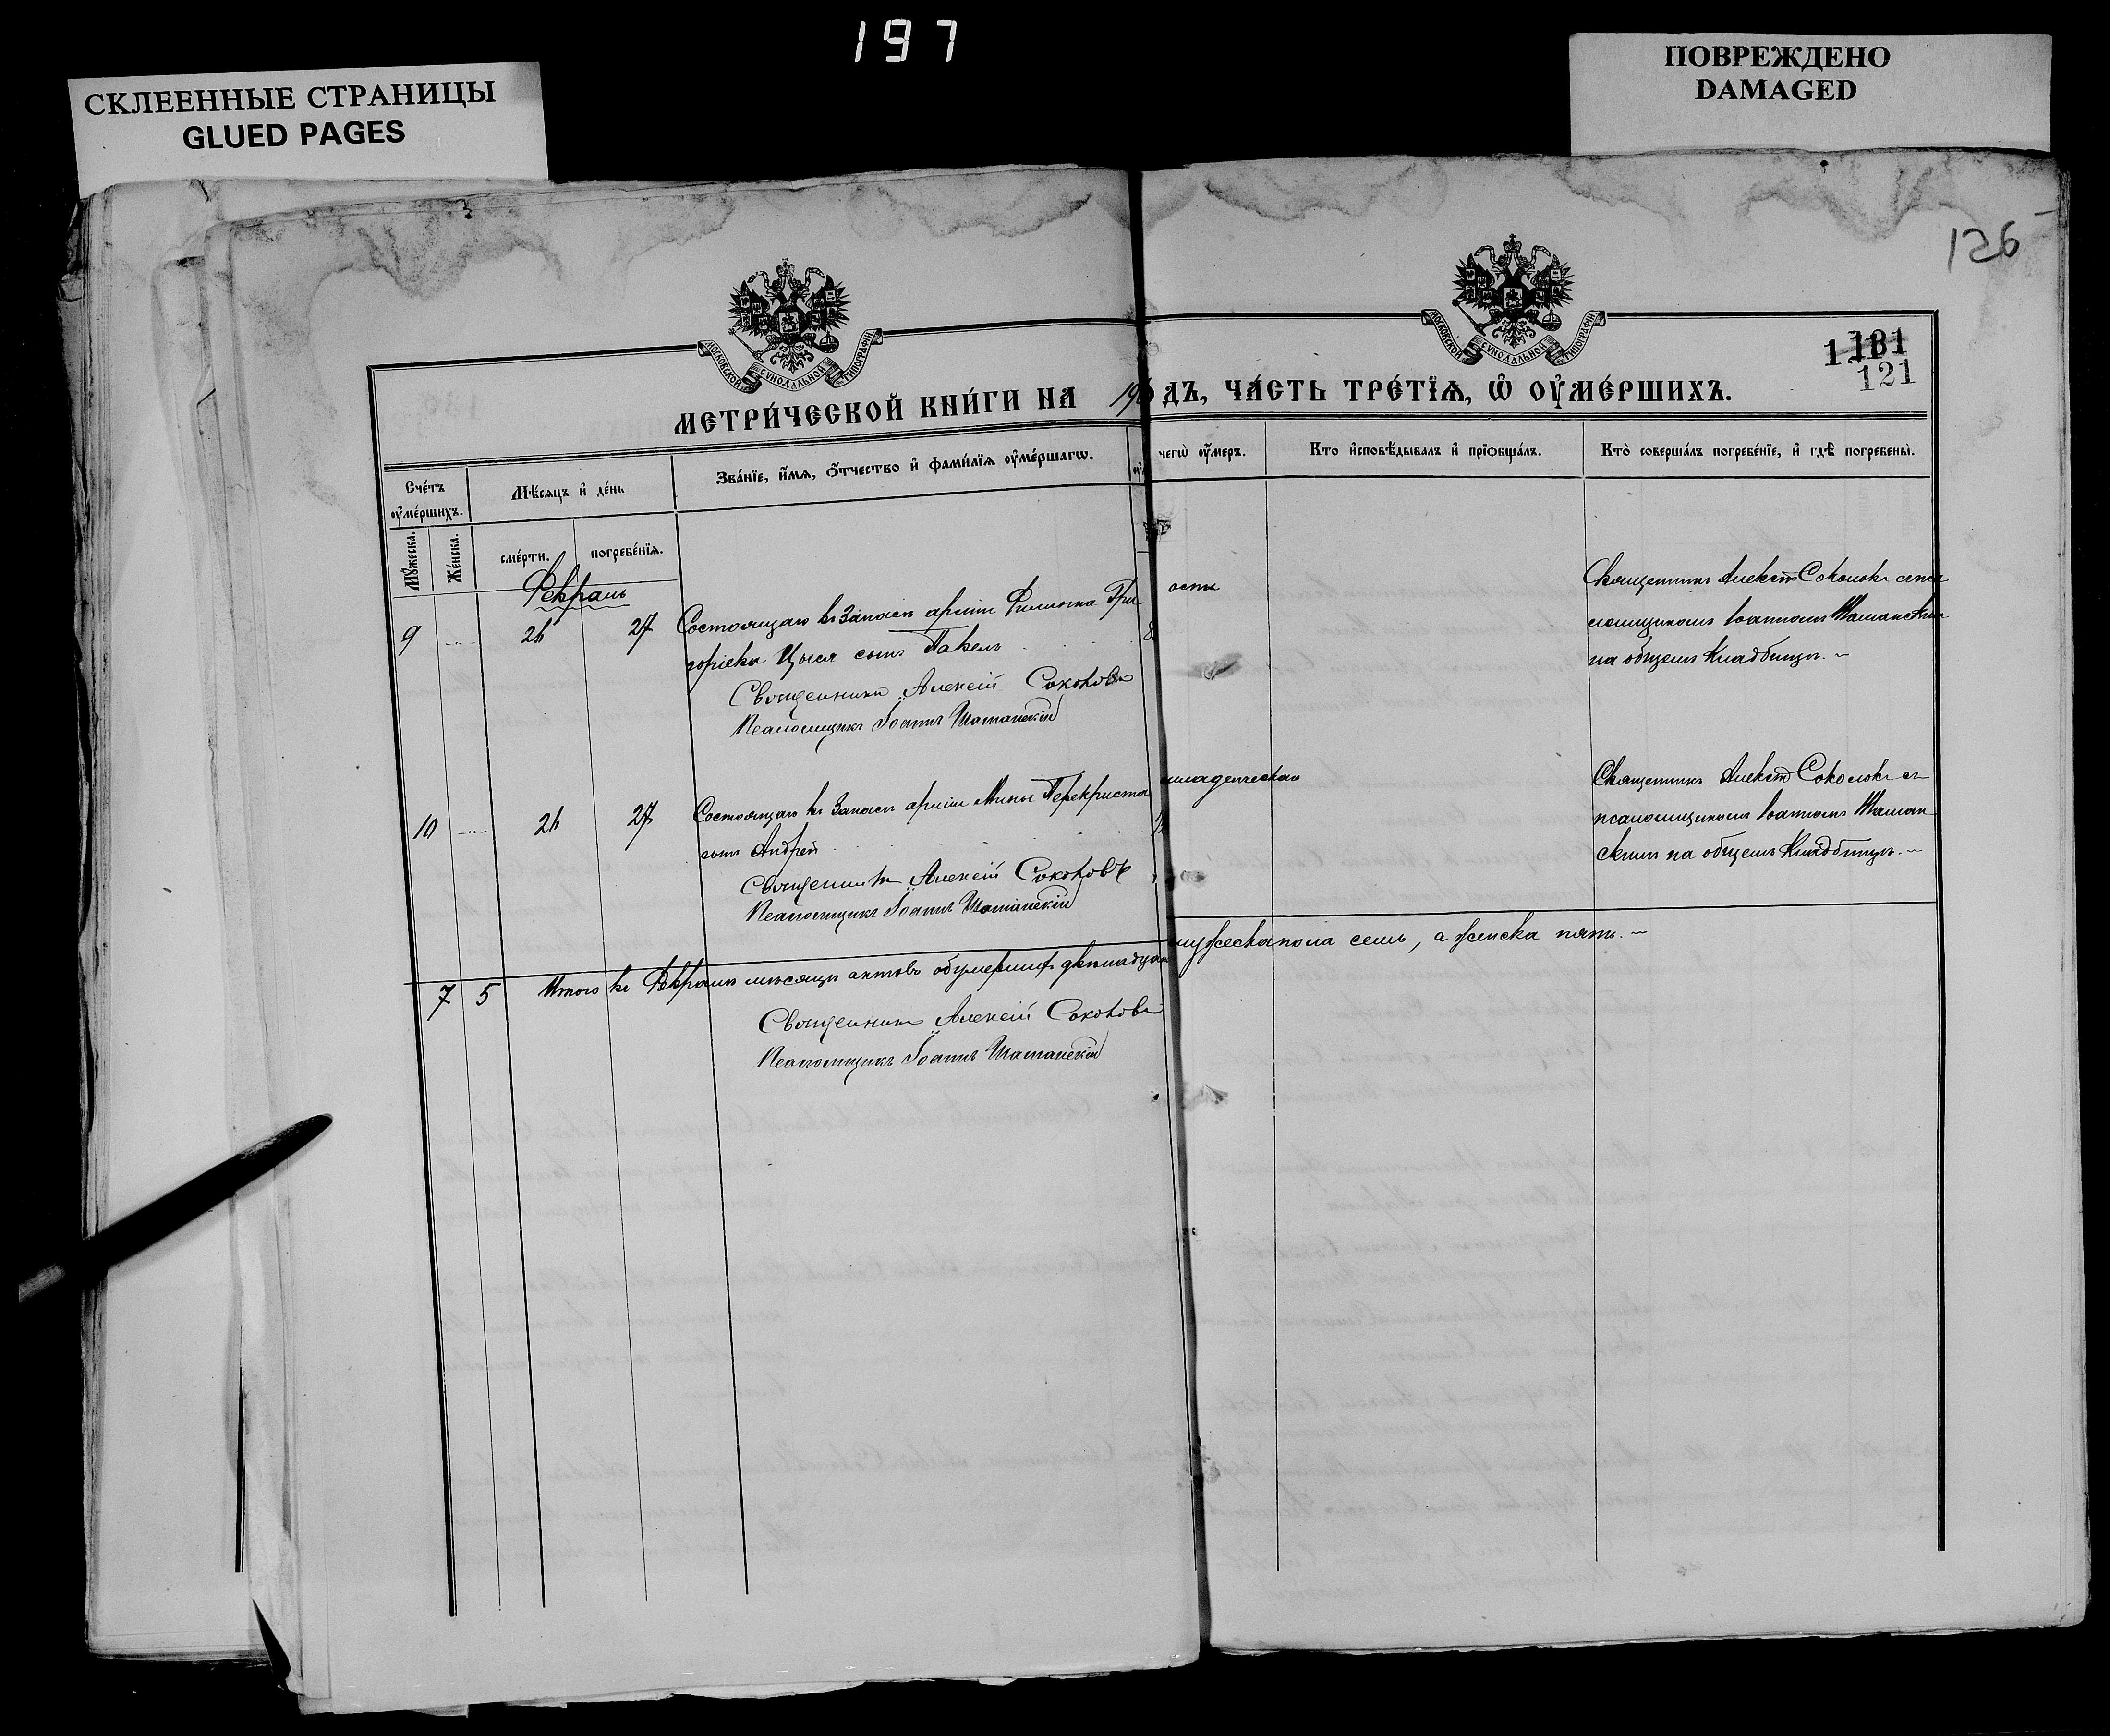 197
СКЛЕЕННЫЕ СТРАНИЦЫ
GLUED PAGES
ПОВРЕЖДЕНО
DAMAGED
126
МОСКОВСКОЙ СѴНОДАЛЬНОЙ ТИПОГРАФІИ
МОСКОВСКОЙ СѴНОДАЛЬНОЙ ТИПОГРАФІИ
131
121
МЕТРИ́ЧЕСКОЙ КНИ́ГИ НА 190 ДЪ, ЧА́СТЬ ТРЕ́ТЇѦ, Ѡ҆ ОУ҆МЕ́РШИХЪ.
Сче́тъ оу҆ме́ршихъ.
Мѣ́сѧцъ и҆ де́нь
Зва́нїе, и҆́мѧ, ѻ҆́тчество и҆ фами́лїѧ оу҆ме́ршагѡ.
чегѡ̀ оу҆́меръ.
Кто̀ и҆сповѣ́дывалъ и҆ прїѡбща́лъ.
Кто̀ соверша́лъ погребе́нїе, и҆ гдѣ̀ погребены̀.
Мꙋ́жеска.
Же́нска.
сме́рти.
погребе́нїѧ.
Февраль
9 26 27 Состоящаго въ запасѣ арміи Филиппа Гри
горіева Цыся сынъ Павелъ
Священникъ Алексій Соколовъ
Псаломщикъ Іоаннъ Шаманскій
Священникъ Алексѣй Соколовъ
ломщикомъ Іоанномъ Шаманским
на общемъ кладбищѣ.
10 26 27 Состоящаго въ запасѣ арміи Мины Перекриста младенческая
сынъ Андрей
Священникъ Алексій Соколовъ
Псаломщикъ Іоаннъ Шаманскій
Священникъ Алексѣй Соколовъ съ
псаломщикомъ Іоанномъ Шаман
скимъ на общемъ кладбищѣ.
7 5 Итого въ Февралѣ мѣсяцѣ актовъ объ умершихъ двѣнадцать мужеска пола семь, а женска пять.
Священникъ Алексій Соколовъ
Псаломщикъ Іоаннъ Шаманскій